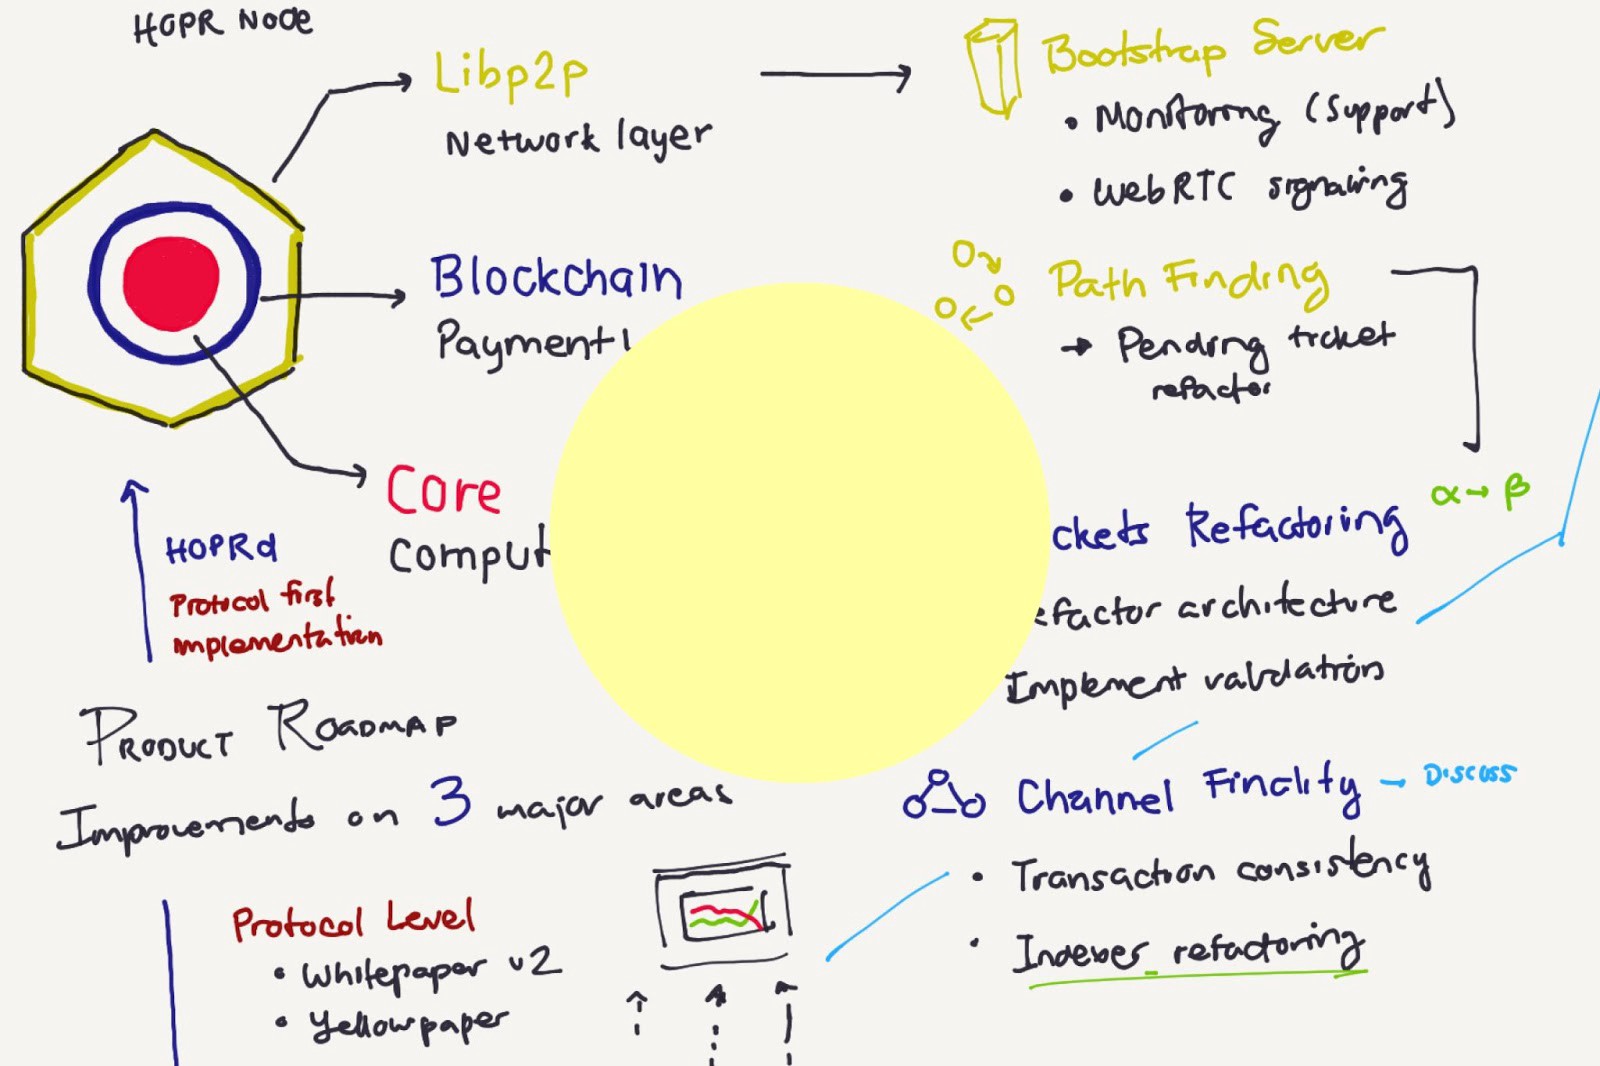 HOPR NODE
Libp2p
Network layer
Blockchain
Payment
Core
Comput
HOPRd
Protocol first
implementation
PRODUCT ROADMAP
Improvements on 3 major areas
Protocol Level
• Whitepaper v2
• Yellowpaper
Bootstrap Server
• Monitoring (Support)
• WebRTC signaling
Path Finding
→ Pending ticket
refactor
α → β
ckets Refactoring
efactor architecture
Implement validation
Channel Finality - Discuss
• Transaction consistency
• Indexer refactoring